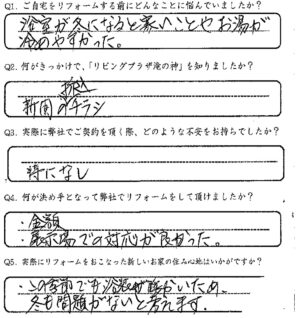 Q1. ご自宅をリフォームする前にどんなことに悩んでいましたか?
浴室が冬になると寒いことやお湯が
冷めやすかった。
Q2. 何がきっかけで、「リビングプラザ滝の神」を知りましたか?
折込
新聞のチラシ
Q3. 実際に弊社でご契約を頂く際、どのような不安をお持ちでしたか?
特になし
Q4. 何が決め手となって弊社でリフォームをして頂けましたか?
・金額
・展示場での対応が良かった。
Q5. 実際にリフォームをおこなった新しいお家の住み心地はいかがですか?
・この季節でも浴室が暖かいため、
冬も問題がないと考えます。